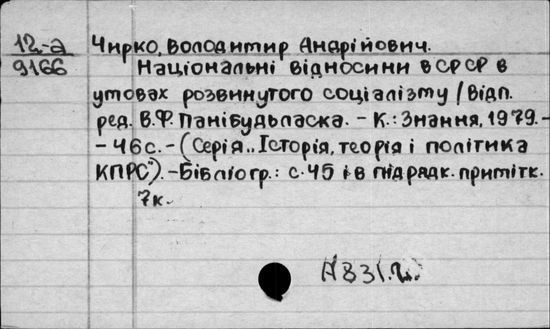 12-а Чирко, Володимир Андрійович.
9166 Національні відносини в СРСР в
умовах розвинутого соціалізму / Відп.
ред. В.Ф. Панібудьласка. – К.: Знання, 1979. –
– 46с. – (Серія „Історія, теорія і політика
КПРС"). – Бібліогр.: с. 45 і в підрядк. примітк.
7к.